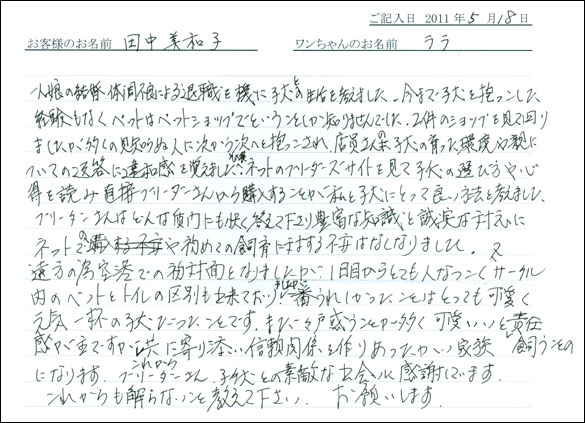 ご記入日 2011年5月18日
お客様のお名前 田中美和子 ワンちゃんのお名前 ララ
一人娘の結婚・体調不良による退職を機に子犬との生活を考えました。今まで子犬を抱っこした
経験もなくペットはペットショップでということしか知りませんでした。2件のショップを見て回り
ましたが多くの見知らぬ人に次から次へと抱っこされ、店員さんの子犬の育った環境や親に
ついての返答に違和感を覚えました。ネットのブリーダーズサイトを見て子犬の選び方や心
得を読み直接ブリーダーさんから購入することが私と子犬にとって良い方法と考えました。
ブリーダーさんはどんな質問にも快く答えて下さり豊富な知識と誠実な対応に
ネットでの購入や初めての飼育に対する不安はなしなりました。又
遠方の為空港での初対面となりましたが、1日目からとても人なつこくサークル
内のベットとトイレの区別も出来ており一番うれしかったことはとっても可愛く
元気一杯の子犬だったことです。まだ戸惑うことが多く可愛いいと責任
感が重ですが共に寄りそい信頼関係を作りあったかい家族
になります。ブリーダーさん、子犬との素敵な出会いに感謝しています。
これからも解らないことを教えて下さい。お願いします。